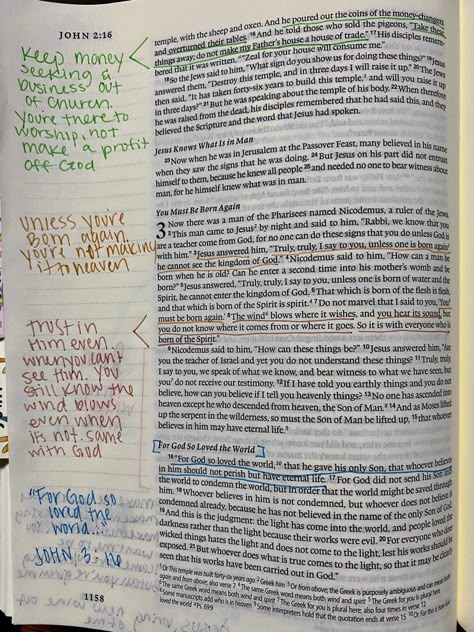 JOHN 2:16
temple, with the sheep and oxen. And he poured out the coins of the money-changers
and overturned their tables. 16 And he told those who sold the pigeons, "Take these
things away; do not make my Father's house a house of trade." 17 His disciples remem-
bered that it was written, "Zeal for your house will consume me."
18 So the Jews said to him, "What sign do you show us for doing these things?" 19 Jesus
answered them, "Destroy this temple, and in three days I will raise it up." 20 The Jews
then said, "It has taken forty-six years to build this temple, and will you raise it up
in three days?" 21 But he was speaking about the temple of his body. 22 When therefore
he was raised from the dead, his disciples remembered that he had said this, and they
believed the Scripture and the word that Jesus had spoken.
Jesus Knows What Is in Man
23 Now when he was in Jerusalem at the Passover Feast, many believed in his name
when they saw the signs that he was doing. 24 But Jesus on his part did not entrust
himself to them, because he knew all people 25 and needed no one to bear witness about
man, for he himself knew what was in man.
You Must Be Born Again
3 Now there was a man of the Pharisees named Nicodemus, a ruler of the Jews.
2 This man came to Jesus by night and said to him, "Rabbi, we know that you
are a teacher come from God, for no one can do these signs that you do unless God is
with him." 3 Jesus answered him, "Truly, truly, I say to you, unless one is born again
he cannot see the kingdom of God." 4 Nicodemus said to him, "How can a man be
born when he is old? Can he enter a second time into his mother's womb and be
born?" 5 Jesus answered, "Truly, truly, I say to you, unless one is born of water and the
Spirit, he cannot enter the kingdom of God. 6 That which is born of the flesh is flesh,
and that which is born of the Spirit is spirit. 7 Do not marvel that I said to you, 'You
must be born again.' 8 The wind blows where it wishes, and you hear its sound, but
you do not know where it comes from or where it goes. So it is with everyone who is
born of the Spirit."
9 Nicodemus said to him, "How can these things be?" 10 Jesus answered him, "Are
you the teacher of Israel and yet you do not understand these things? 11 Truly, truly,
I say to you, we speak of what we know, and bear witness to what we have seen, but
you do not receive our testimony. 12 If I have told you earthly things and you do not
believe, how can you believe if I tell you heavenly things? 13 No one has ascended into
heaven except he who descended from heaven, the Son of Man. 14 And as Moses lifted
up the serpent in the wilderness, so must the Son of Man be lifted up, 15 that whoever
believes in him may have eternal life.
For God So Loved the World
16 "For God so loved the world, that he gave his only Son, that whoever believes
in him should not perish but have eternal life. 17 For God did not send his Son into
the world to condemn the world, but in order that the world might be saved through
him. 18 Whoever believes in him is not condemned, but whoever does not believe is
condemned already, because he has not believed in the name of the only Son of God.
19 And this is the judgment: the light has come into the world, and people loved the
darkness rather than the light because their works were evil. 20 For everyone who does
wicked things hates the light and does not come to the light, lest his works should be
exposed. 21 But whoever does what is true comes to the light, so that it may be clearly
seen that his works have been carried out in God."
Keep money
seeking &
business out
of Church.
You're there to
worship, not
make a profit
off God
Unless you're
Born again
you're not making
it to heaven
Trust in
Him even
when you can't
see Him. You
still know the
wind blows
even when
it's not. same
with God
"For God so
loved the
world..."
JOHN 3:16
1158